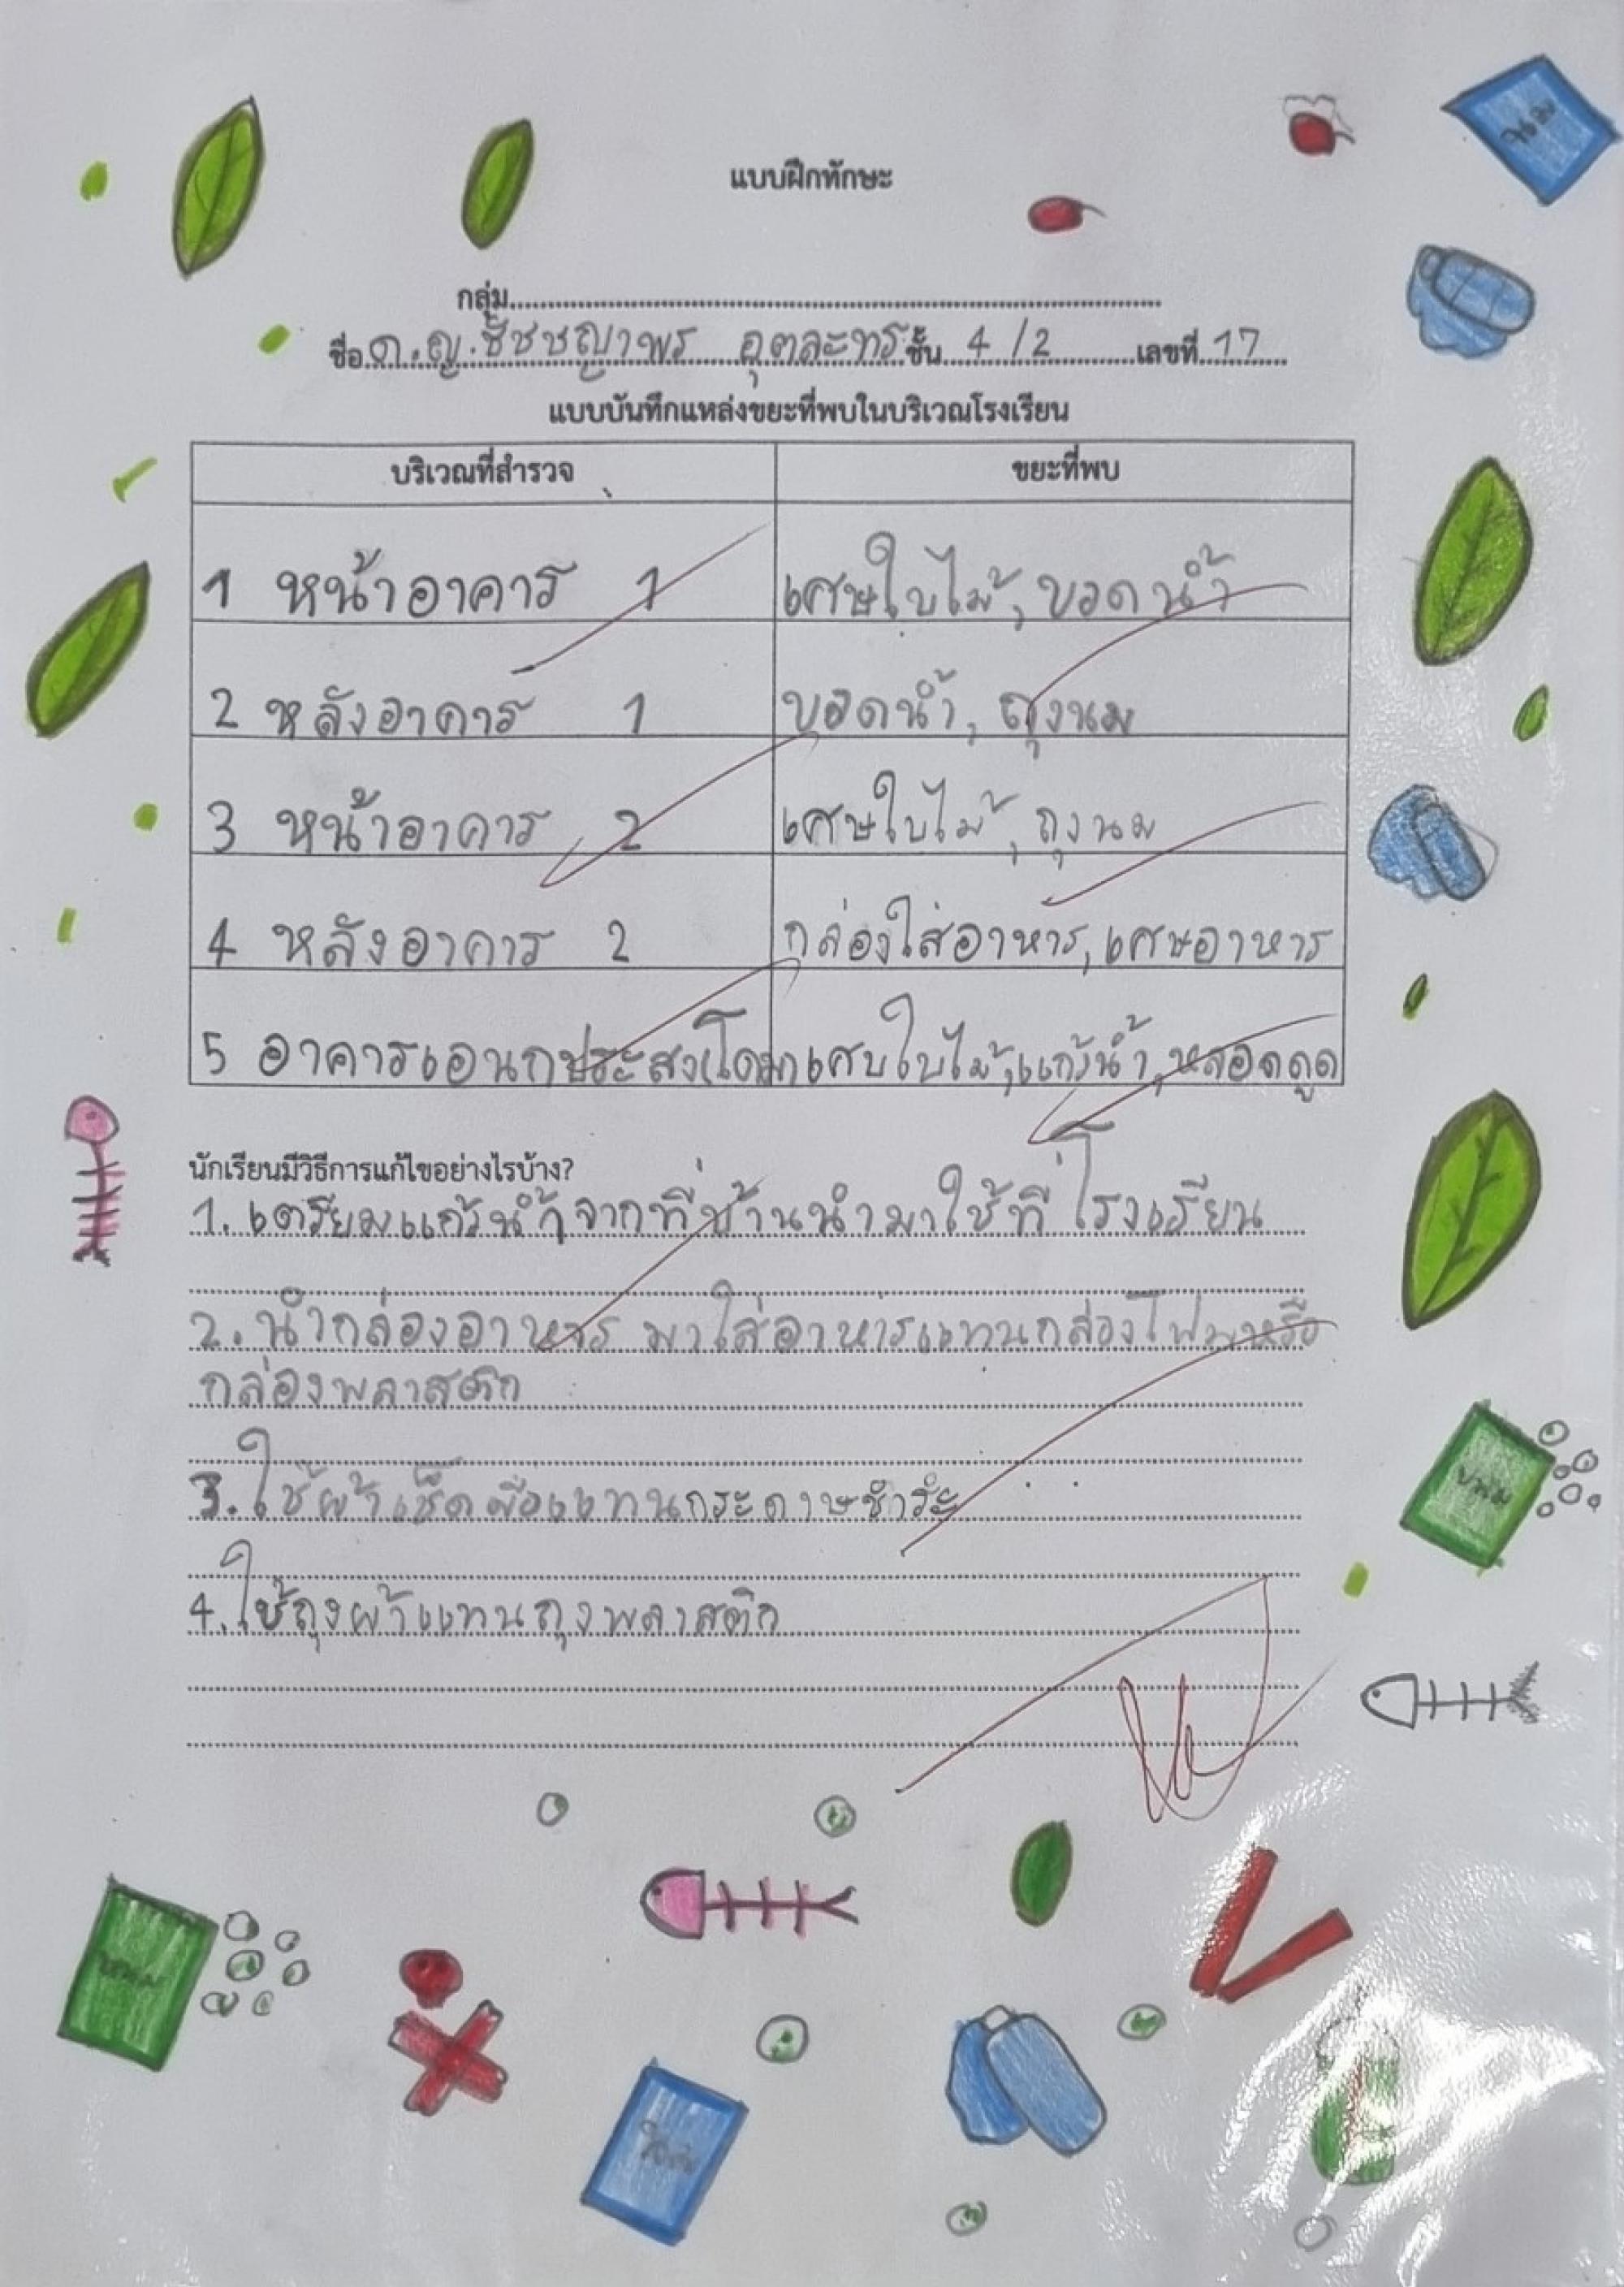 นม
แบบฝึกทักษะ
กลุ่ม
ชื่อ ด.ญ.ชัชชญาพร อุตละทร ชั้น 4/2 เลขที่ 17
แบบบันทึกแหล่งขยะที่พบในบริเวณโรงเรียน
บริเวณที่สำรวจ ขยะที่พบ
1 หน้าอาคาร 1 เศษใบไม้, ขวดน้ำ
2 หลังอาคาร 1 ขวดน้ำ, ถุงนม
3 หน้าอาคาร 2 เศษใบไม้, ถุงนม
4 หลังอาคาร 2 กล่องใส่อาหาร, เศษอาหาร
5 อาคารเอนกประสง(โดม) เศษใบไม้, แก้วน้ำ, หลอดดูด
นักเรียนมีวิธีการแก้ไขอย่างไรบ้าง?
1. เตรียมแก้วน้ำจากที่บ้านนำมาใช้ที่โรงเรียน
2. นำกล่องอาหาร มาใส่อาหารแทนกล่องโฟมหรือ
กล่องพลาสติก
3. ใช้ผ้าเช็ดมือแทนกระดาษชำระ
4. ใช้ถุงผ้าแทนถุงพลาสติก
ขนม
ขนม